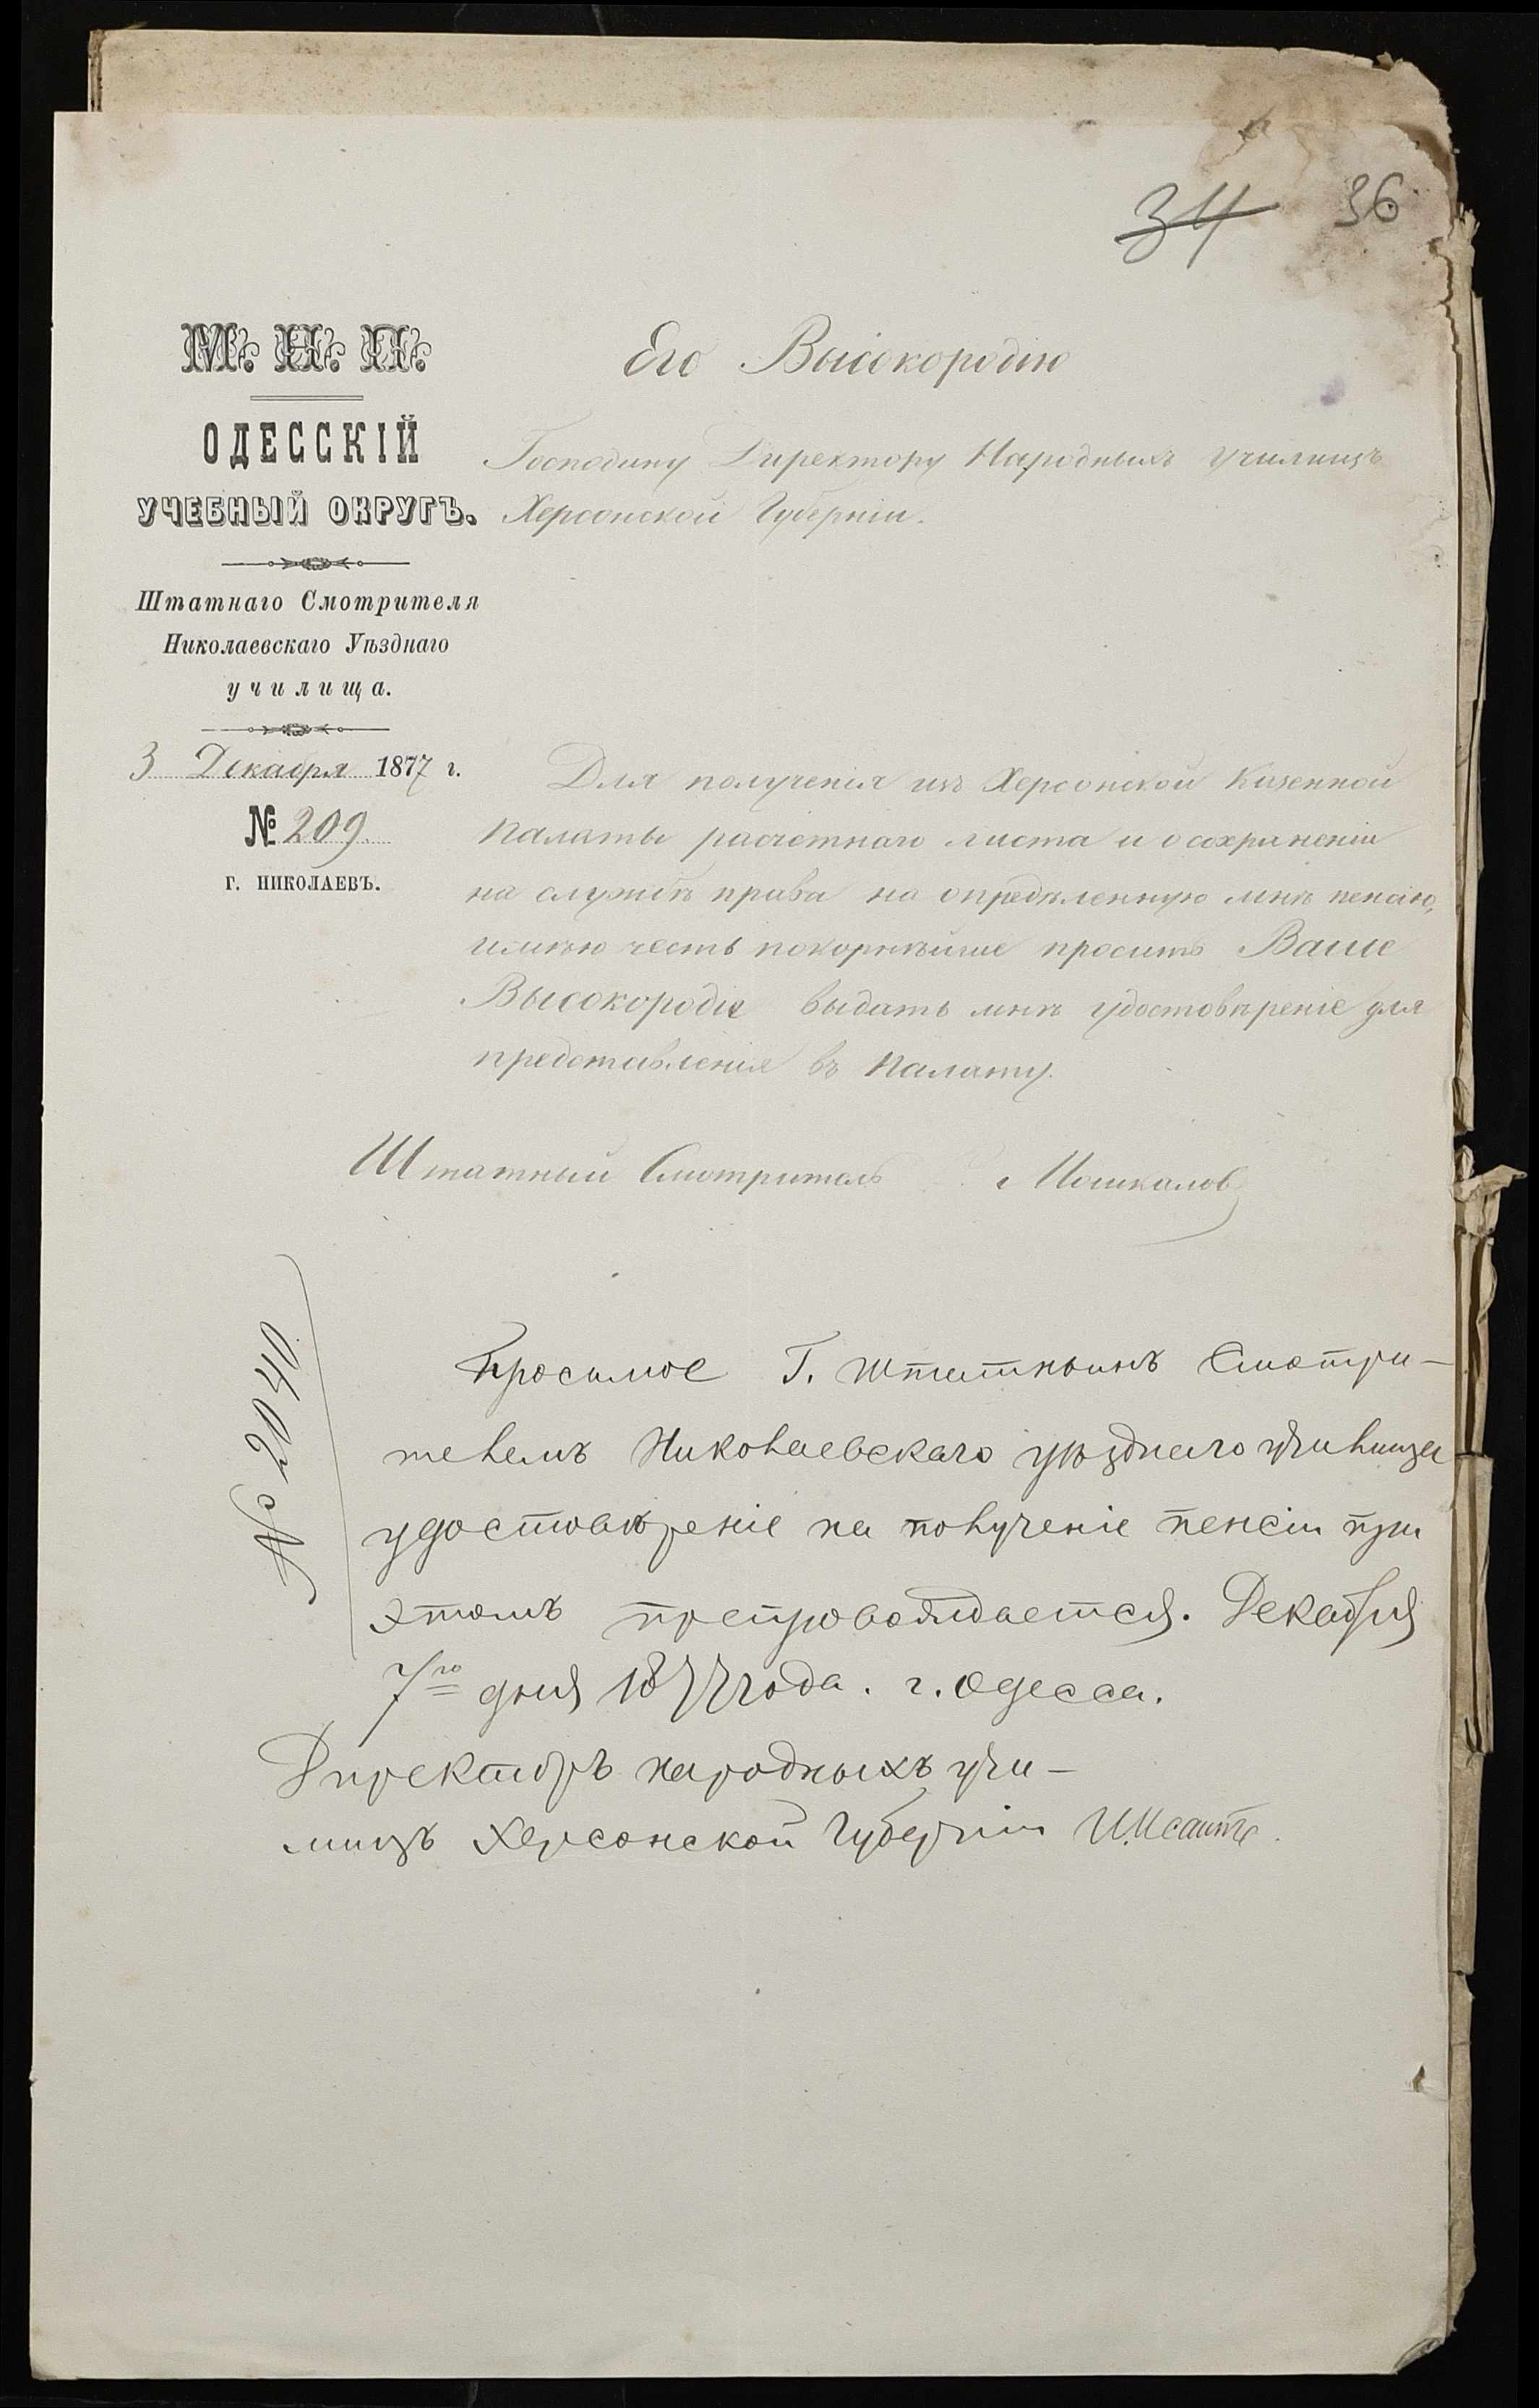 34 36
М. Н. П.
ОДЕССКІЙ
УЧЕБНЫЙ ОКРУГЪ.
Штатнаго Смотрителя
Николаевскаго Уѣзднаго
училища.
3 Декабря 1877 г.
№ 209.
Г. НИКОЛАЕВЪ.
Его Высокородію
Господину Директору Народныхъ Училищъ
Херсонской Губерніи.
Для полученія изъ Херсонской Казенной
Палаты расчетнаго листа и о сохраненіи
на службѣ права на опредѣленную мнѣ пенсію,
имѣю честь покорнѣйше просить Ваше
Высокородіе выдать мнѣ удостовѣреніе для
представленія въ Палату.
Штатный Смотритель Мошкалов
№ 2040
Просимое Г. Штатнымъ Смотри-
телемъ Николаевскаго уѣзднаго училища
удостовѣреніе на полученіе пенсіи при
этомъ препровождается. Декабря
7го дня 1877 года. г. Одесса.
Директоръ народныхъ учи-
лищъ Херсонской Губерніи